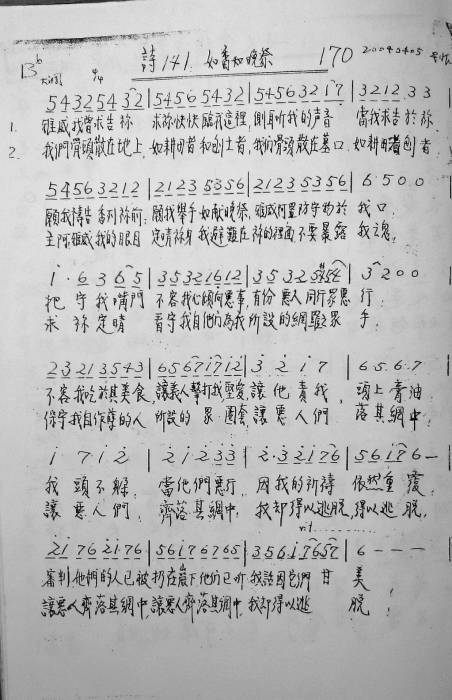 詩141. 如香如晚祭 170 20040405
B♭ 大調 4/4
5432 5432 | 5456 5432 | 5456 3217 | 3212 3 3
1. 雅威我曾求告祢 求祢快快臨我這裡 側耳聽我的聲音 當我求告於祢
2. 我們骨頭散在地上, 如耕田者和刨土者, 我們骨頭散在墓口 如耕田者刨者
5456 3212 | 2123 5356 | 2123 5356 | 6·500
願我禱告香列祢前; 願我舉手如獻晚祭, 雅威阿置防守物於 我口.
主阿雅威我的眼目 定睛祢身我避難在祢的裡面不要暴露 我魂.
1·6 3 65 | 3532 1612 | 353254 | 3 2 0 0
把守我嘴門 不容我心傾向惡事, 有份惡人同行眾惡 行.
求祢定睛 看守我自他們為我所設的網羅眾 手.
2321 3543 | 656 71712 | 3 2 1 7 | 65.6.7
不容我吃於其美食, 讓義人擊打我堅愛, 讓他責我, 頭上膏油
保守我自作孽的人 所設的眾圈套, 讓惡人們 落其網中.
1 7 1 2 | 2 1 2 3 3 | 2·32176 | 56176—
我頭不躲. 當他們惡行, 因我的祈禱 依然重覆.
讓惡人們. 齊落其網中, 我卻得以逃脫, 得以逃脫.
rit.......
2176 2176 | 56176765 | 356.17657 | 6---
審判他們的人已被扔在巖下他們已聽我話因它們甘 美.
讓惡人齊落其網中, 讓惡人齊落其網中, 我卻得以逃 脫.